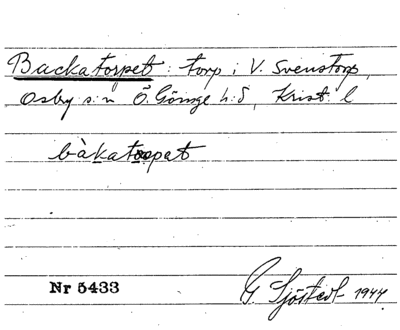 Backatorpet: torp i V. Svenstorp,
Osby s:n Ö. Göinge h:d, Krist. l
bàkatorpat
Nr 5433
G. Sjöstedt 1944